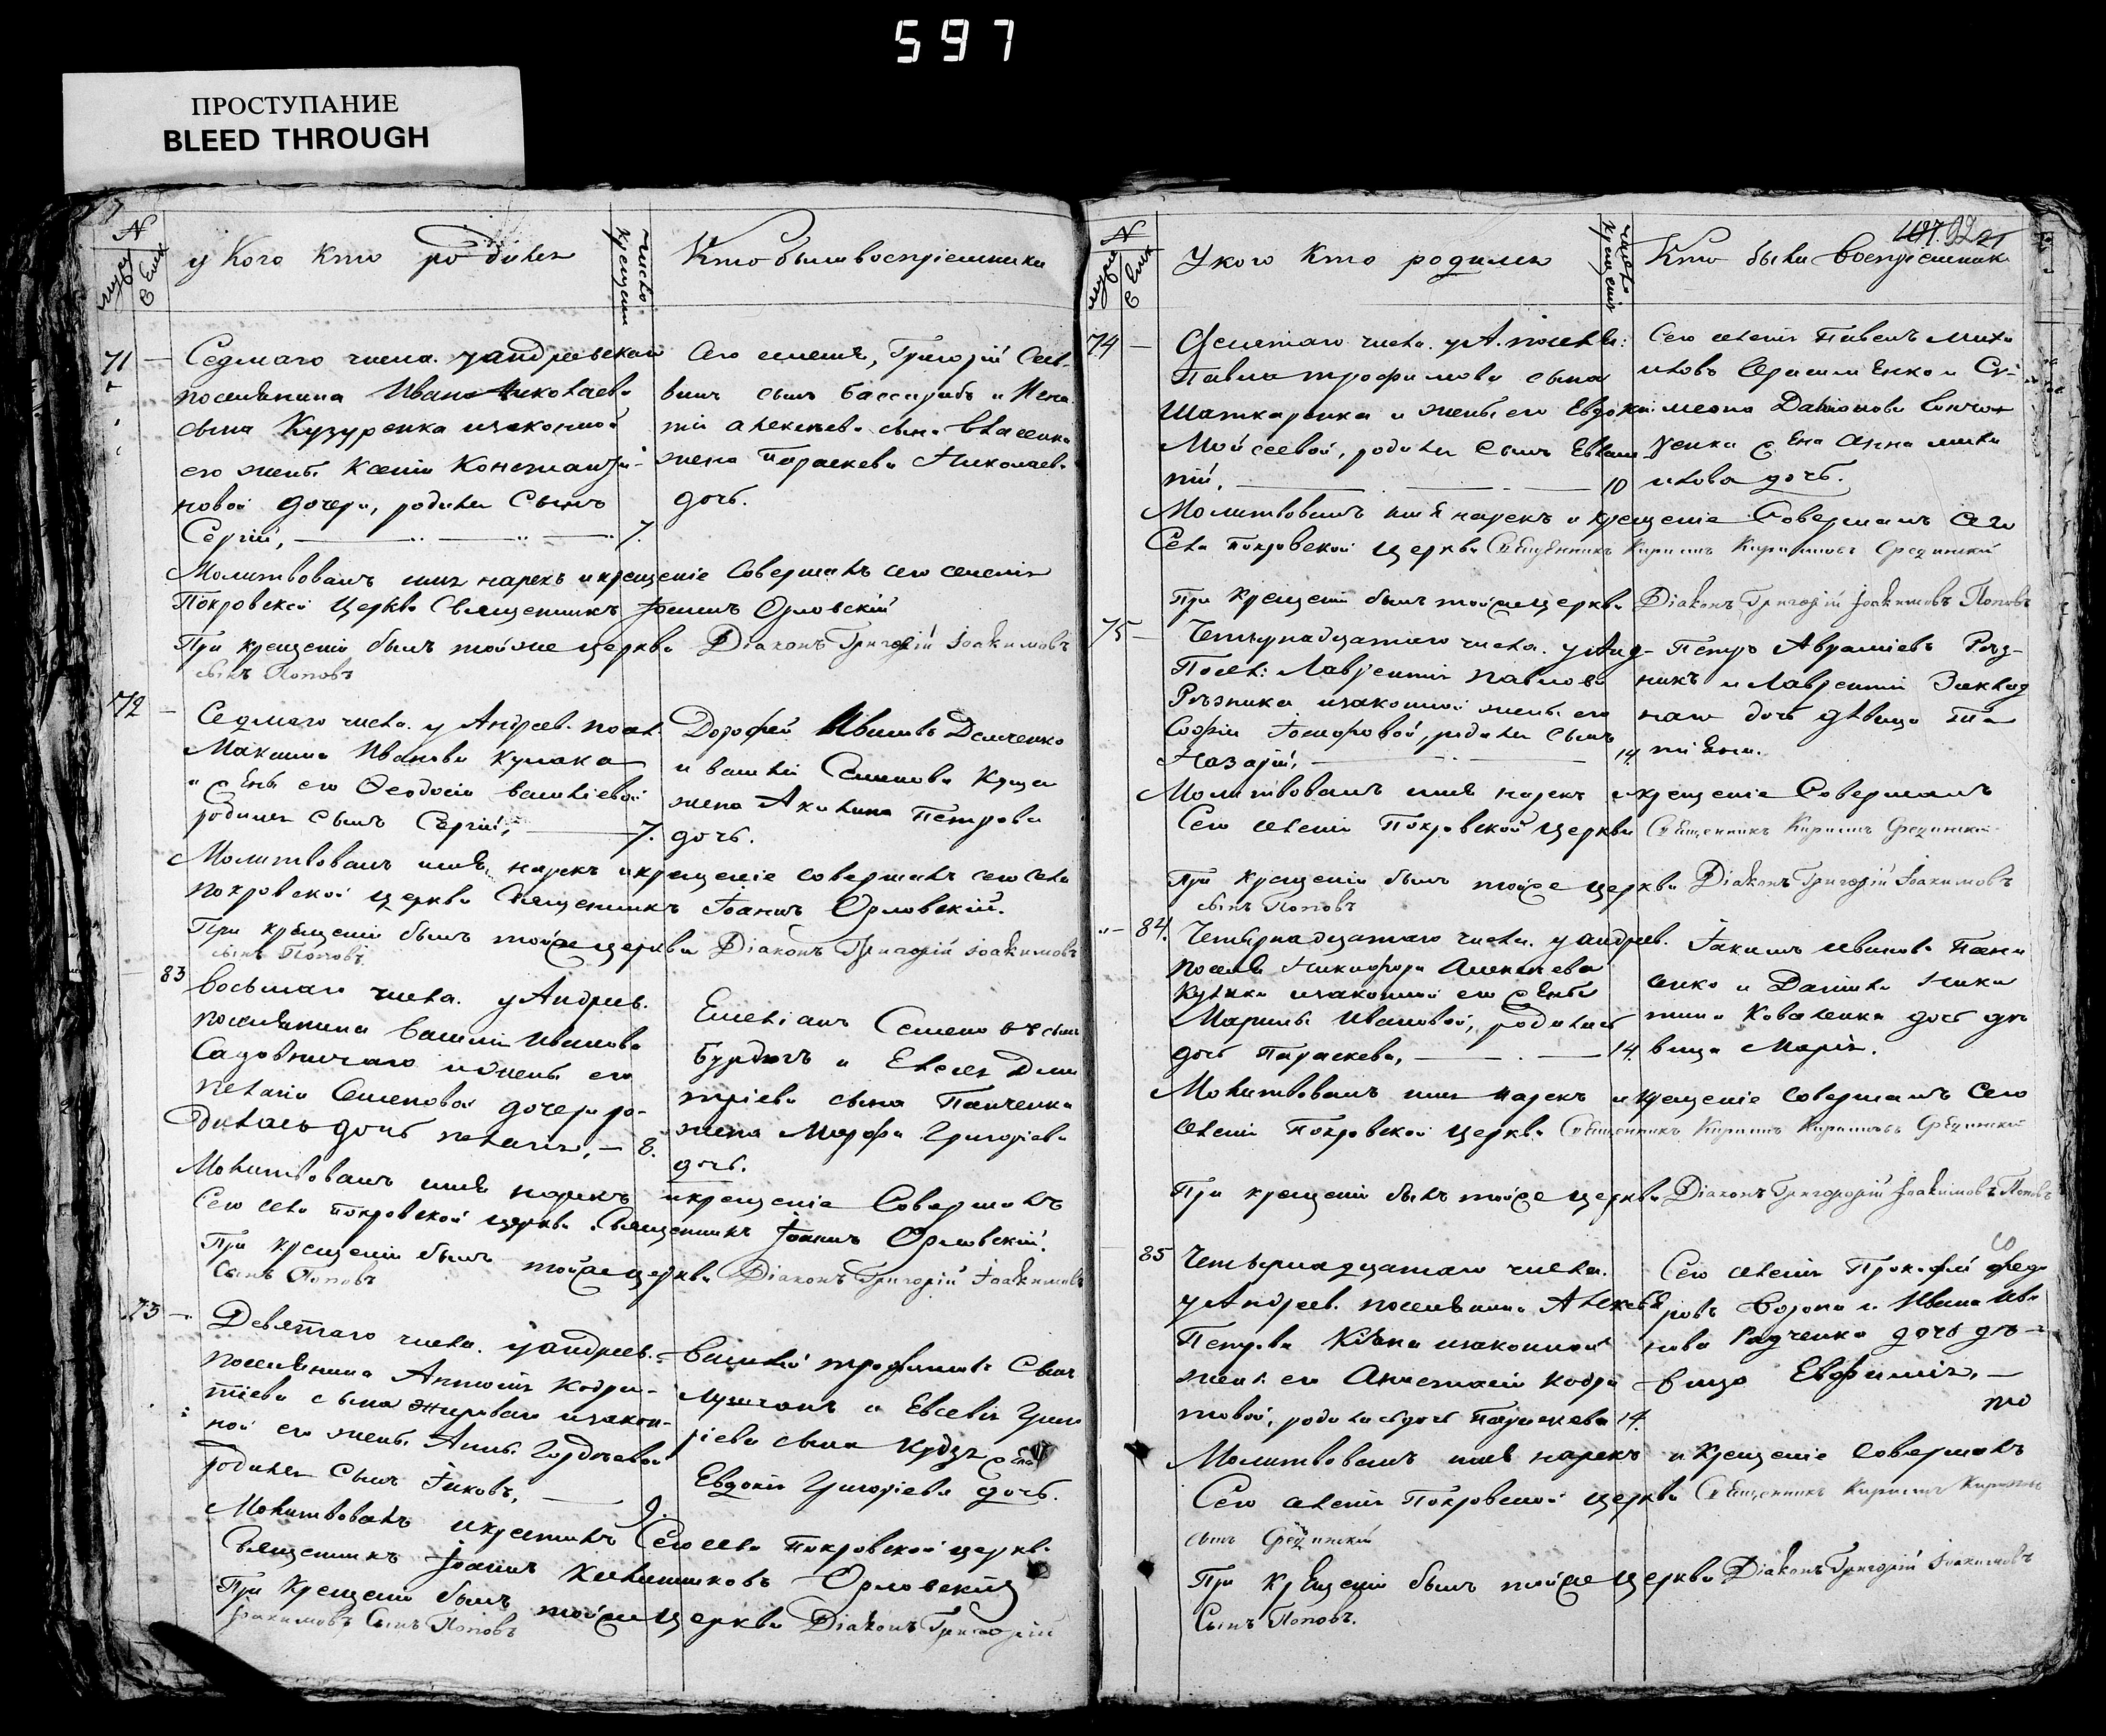 597
ПРОСТУПАНИЕ
BLEED THROUGH
N
муж
Женс
у Кого кто родился
число крещения
Кто были воспріемники
71
Седмаго числа. у андреевскаго
поселянина Ивана Николаева
сына Кузуренка и законной
его жены Ксеніи Константи-
новой дочери, родился Сынъ
Сергій, 7.
Сего селенія, Григорій Сав-
винъ сынъ бассарабъ и
Алексѣева сына Власенка
жена Параскева Николаева
дочь.
Молитвовалъ имя нарекъ и крещеніе Совершалъ сего селенія
Покровской Церкви Священникъ Іоаннъ Орловскій
При крещеніи былъ той же церкви Діаконъ Григорій Іоакимовъ
сынъ Поповъ
72
Седмаго числа. у Андреев. посел.
Максима Иванова Кулака
и жены его Ѳеодосіи василіевой
родился сынъ Сергій, 7.
Дорофей Ивановъ Демченко
и василія Семенова
жена Акилина Петрова
дочь.
Молитвовалъ имя нарекъ и крещеніе совершалъ сего села
Покровской церкви Священникъ Іоаннъ Орловскій.
При крещеніи былъ той же церкви Діаконъ Григорій Іоакимовъ
сынъ Поповъ
83
Восьмаго числа. у Андреев.
поселянина Василія Иванова
Садовничаго и жены его
Пелагіи Семеновой дочери ро-
дилась дочь Пелагія, 8.
Емеліанъ Семеновъ сынъ
Бурдюгъ и Елисея Дми
тріева сына Панченка
жена Марфа Григоріева
дочь.
Молитвовалъ имя нарекъ и крещеніе Совершалъ
Сего села покровской церкви Священникъ Іоаннъ Орловскій.
При крещеніи былъ той же церкви Діаконъ Григорій Іоакимовъ
Сынъ Поповъ
73
Девятаго числа. у андреев.
поселянина Антонія Кодра-
тіева сына и закон-
ной его жены Анны Гордѣевой
родился Сынъ Іаковъ, 9.
Василій трофимовъ Сынъ
и Евсевія Григо
ріева сына жена
Евдокія Григоріева дочь.
Молитвовалъ и крестилъ Сего села Покровской церкви
Священникъ Іоаннъ Орловскій
При Крещеніи былъ той же Церкви Діаконъ Григорій
Іоакимовъ Сынъ Поповъ
N
муж
Женс
У кого кто родился
число крещенія
Кто были воспріемники
92
74
Десятаго числа. у А. поселя:
Павла трофимова сына
Шаткаренка и жены его Евдокіи
Мойсеевой, родился сынъ Евлам
пій, 10
Сего селенія Павелъ Миха
иловъ Герасименко и Си-
меона Даміанова
жена Анна Миха
илова дочь.
Молитвовалъ имя нарекъ и крещеніе Совершалъ Сего
Села покровской Церкви Священникъ Кириллъ Кирилловъ
При Крещеніи былъ той же церкви Діаконъ Григорій Іоакимовъ Поповъ
75
Четырнадцатаго числа. у Анд-
Посел: Лаврентія Павлова
Рѣзника и законной жены его
Софіи родился сынъ
Назарій, 14
Петръ Авраміевъ Рѣз-
никъ и Лаврентія
дочь дѣвица Та
тіяна.
Молитвовалъ имя нарекъ и крещеніе Совершалъ
Сего селенія Покровской Церкви Священникъ Кириллъ
При Крещеніи былъ той же церкви Діаконъ Григорій Іоакимовъ
сынъ Поповъ
84.
Четырнадцатаго числа. у андреев.
поселя Никифора Алексѣева
и законной его жены
Марины Ивановой, родилась
дочь Параскева, 14
Іакимъ Ивановъ Пана
сенко и Даніила Ники
тина Коваленка дочь дѣ
вица Марія.
Молитвовалъ имя нарекъ и крещеніе Совершалъ Сего
селенія Покровской Церкви Священникъ Кириллъ Кирилловъ
При крещеніи былъ той же церкви Діаконъ Григорій Іоакимовъ Поповъ
85
Четырнадцатаго числа.
у Андреев. поселянина Алексѣя
Петрова и законной
жены его Анастасіи Кодра
товой, родилась дочь Параскева 14.
Сего селенія Прокофій Федо
ровъ Сорока и Ивана Ива
нова Радченка дочь дѣ-
вица Евфимія.
Молитвовалъ имя нарекъ и Крещеніе Совершалъ
Сего селенія Покровской церкви Священникъ Кириллъ Кирилловъ
сынъ
При Крещеніи былъ той же Церкви Діаконъ Григорій Іоакимовъ
Сынъ Поповъ.